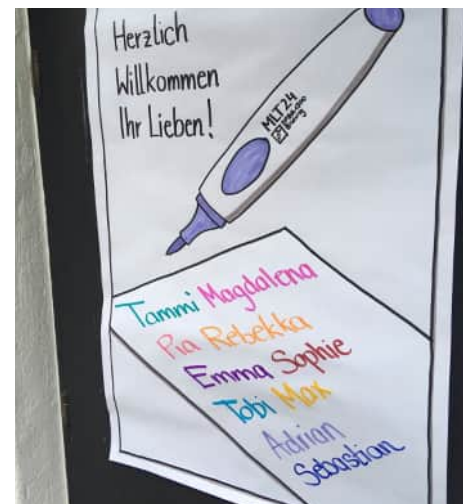 Herzlich
Willkommen
Ihr Lieben!
MLT24
Tammi Magdalena
Pia Rebekka
Emma Sophie
Tobi Max
Adrian
Sebastian